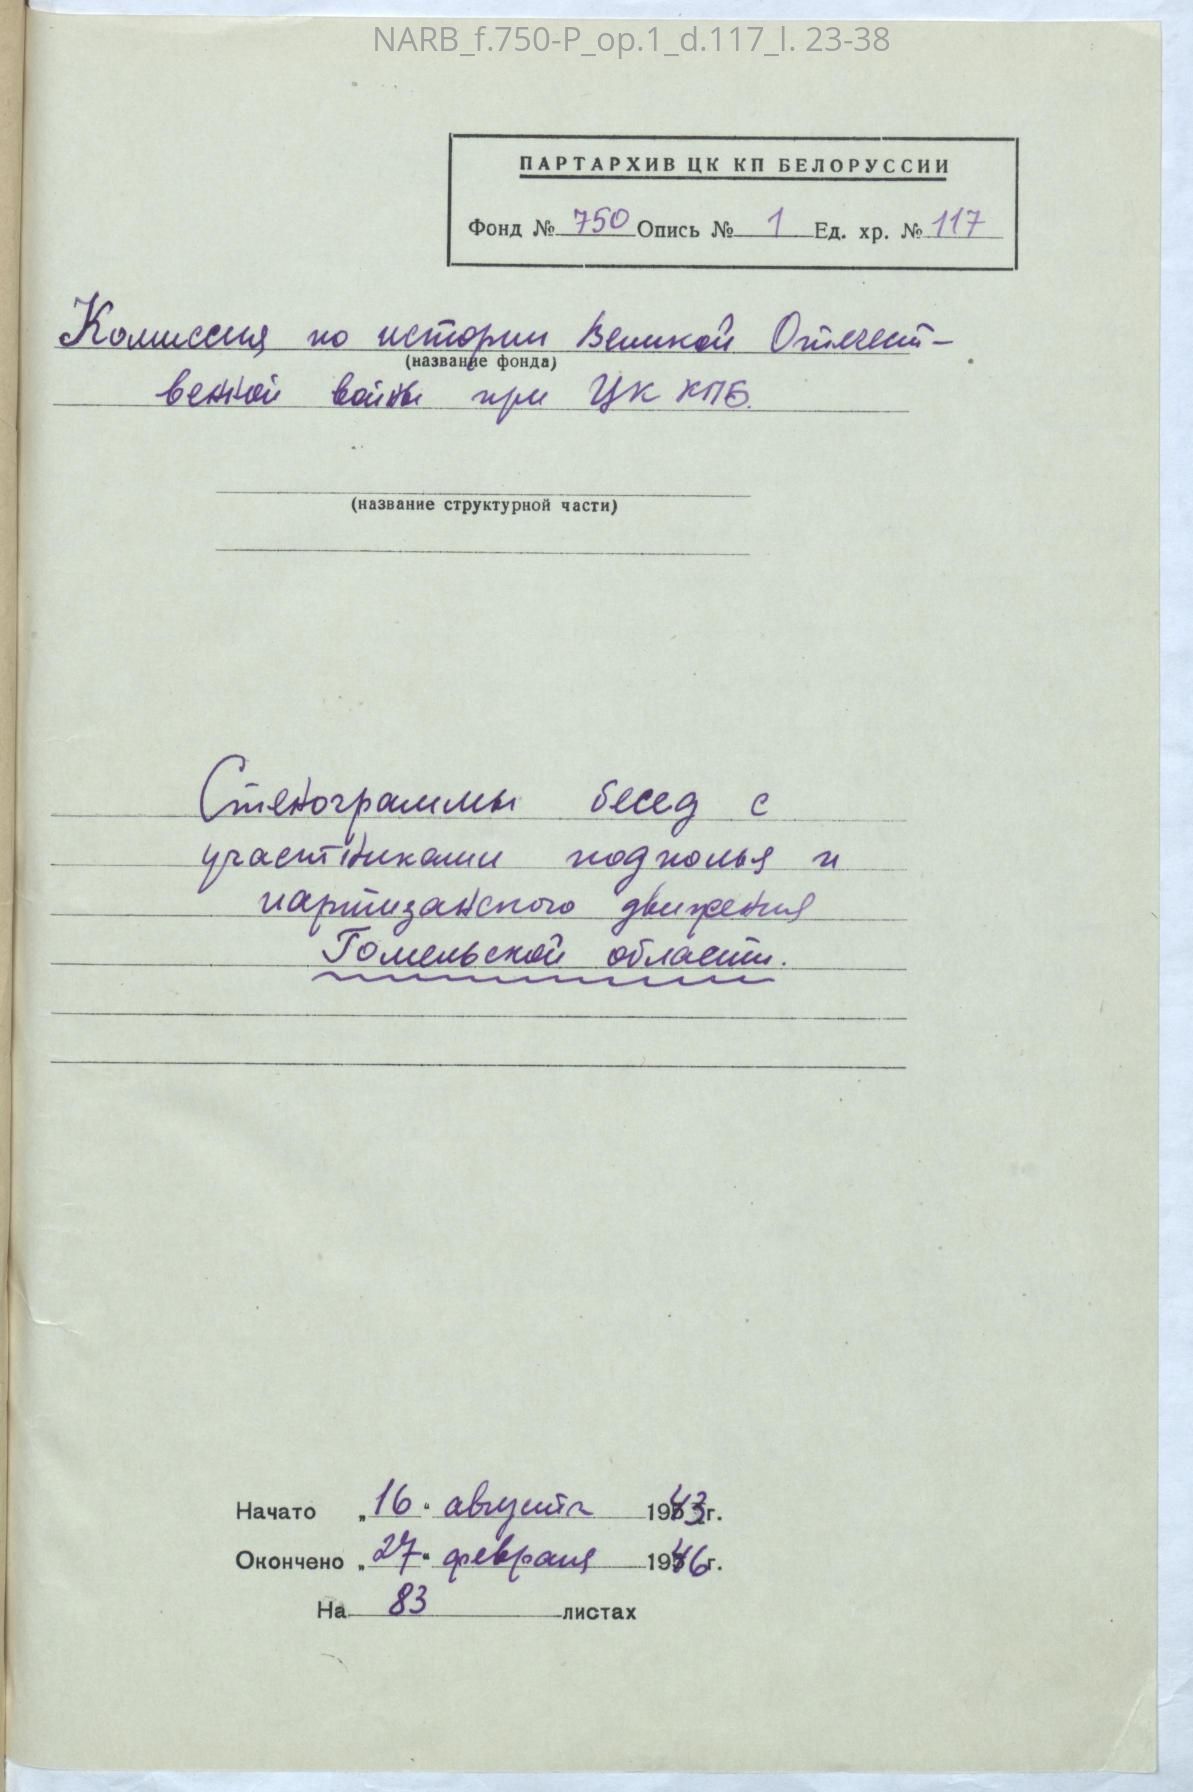 NARB_f.750-P_op.1_d.117_l. 23-38
ПАРТАРХИВ ЦК КП БЕЛОРУССИИ
Фонд № 750 Опись № 1 Ед. хр. № 117
Комиссия по истории Великой Отечест-
(название фонда)
венной войны при ЦК КПБ.
(название структурной части)
Стенограммы бесед с
участниками подполья и
партизанского движения
Гомельской области.
Начато „16“ августа 1943 г.
Окончено „27“ февраля 1946 г.
На 83 листах